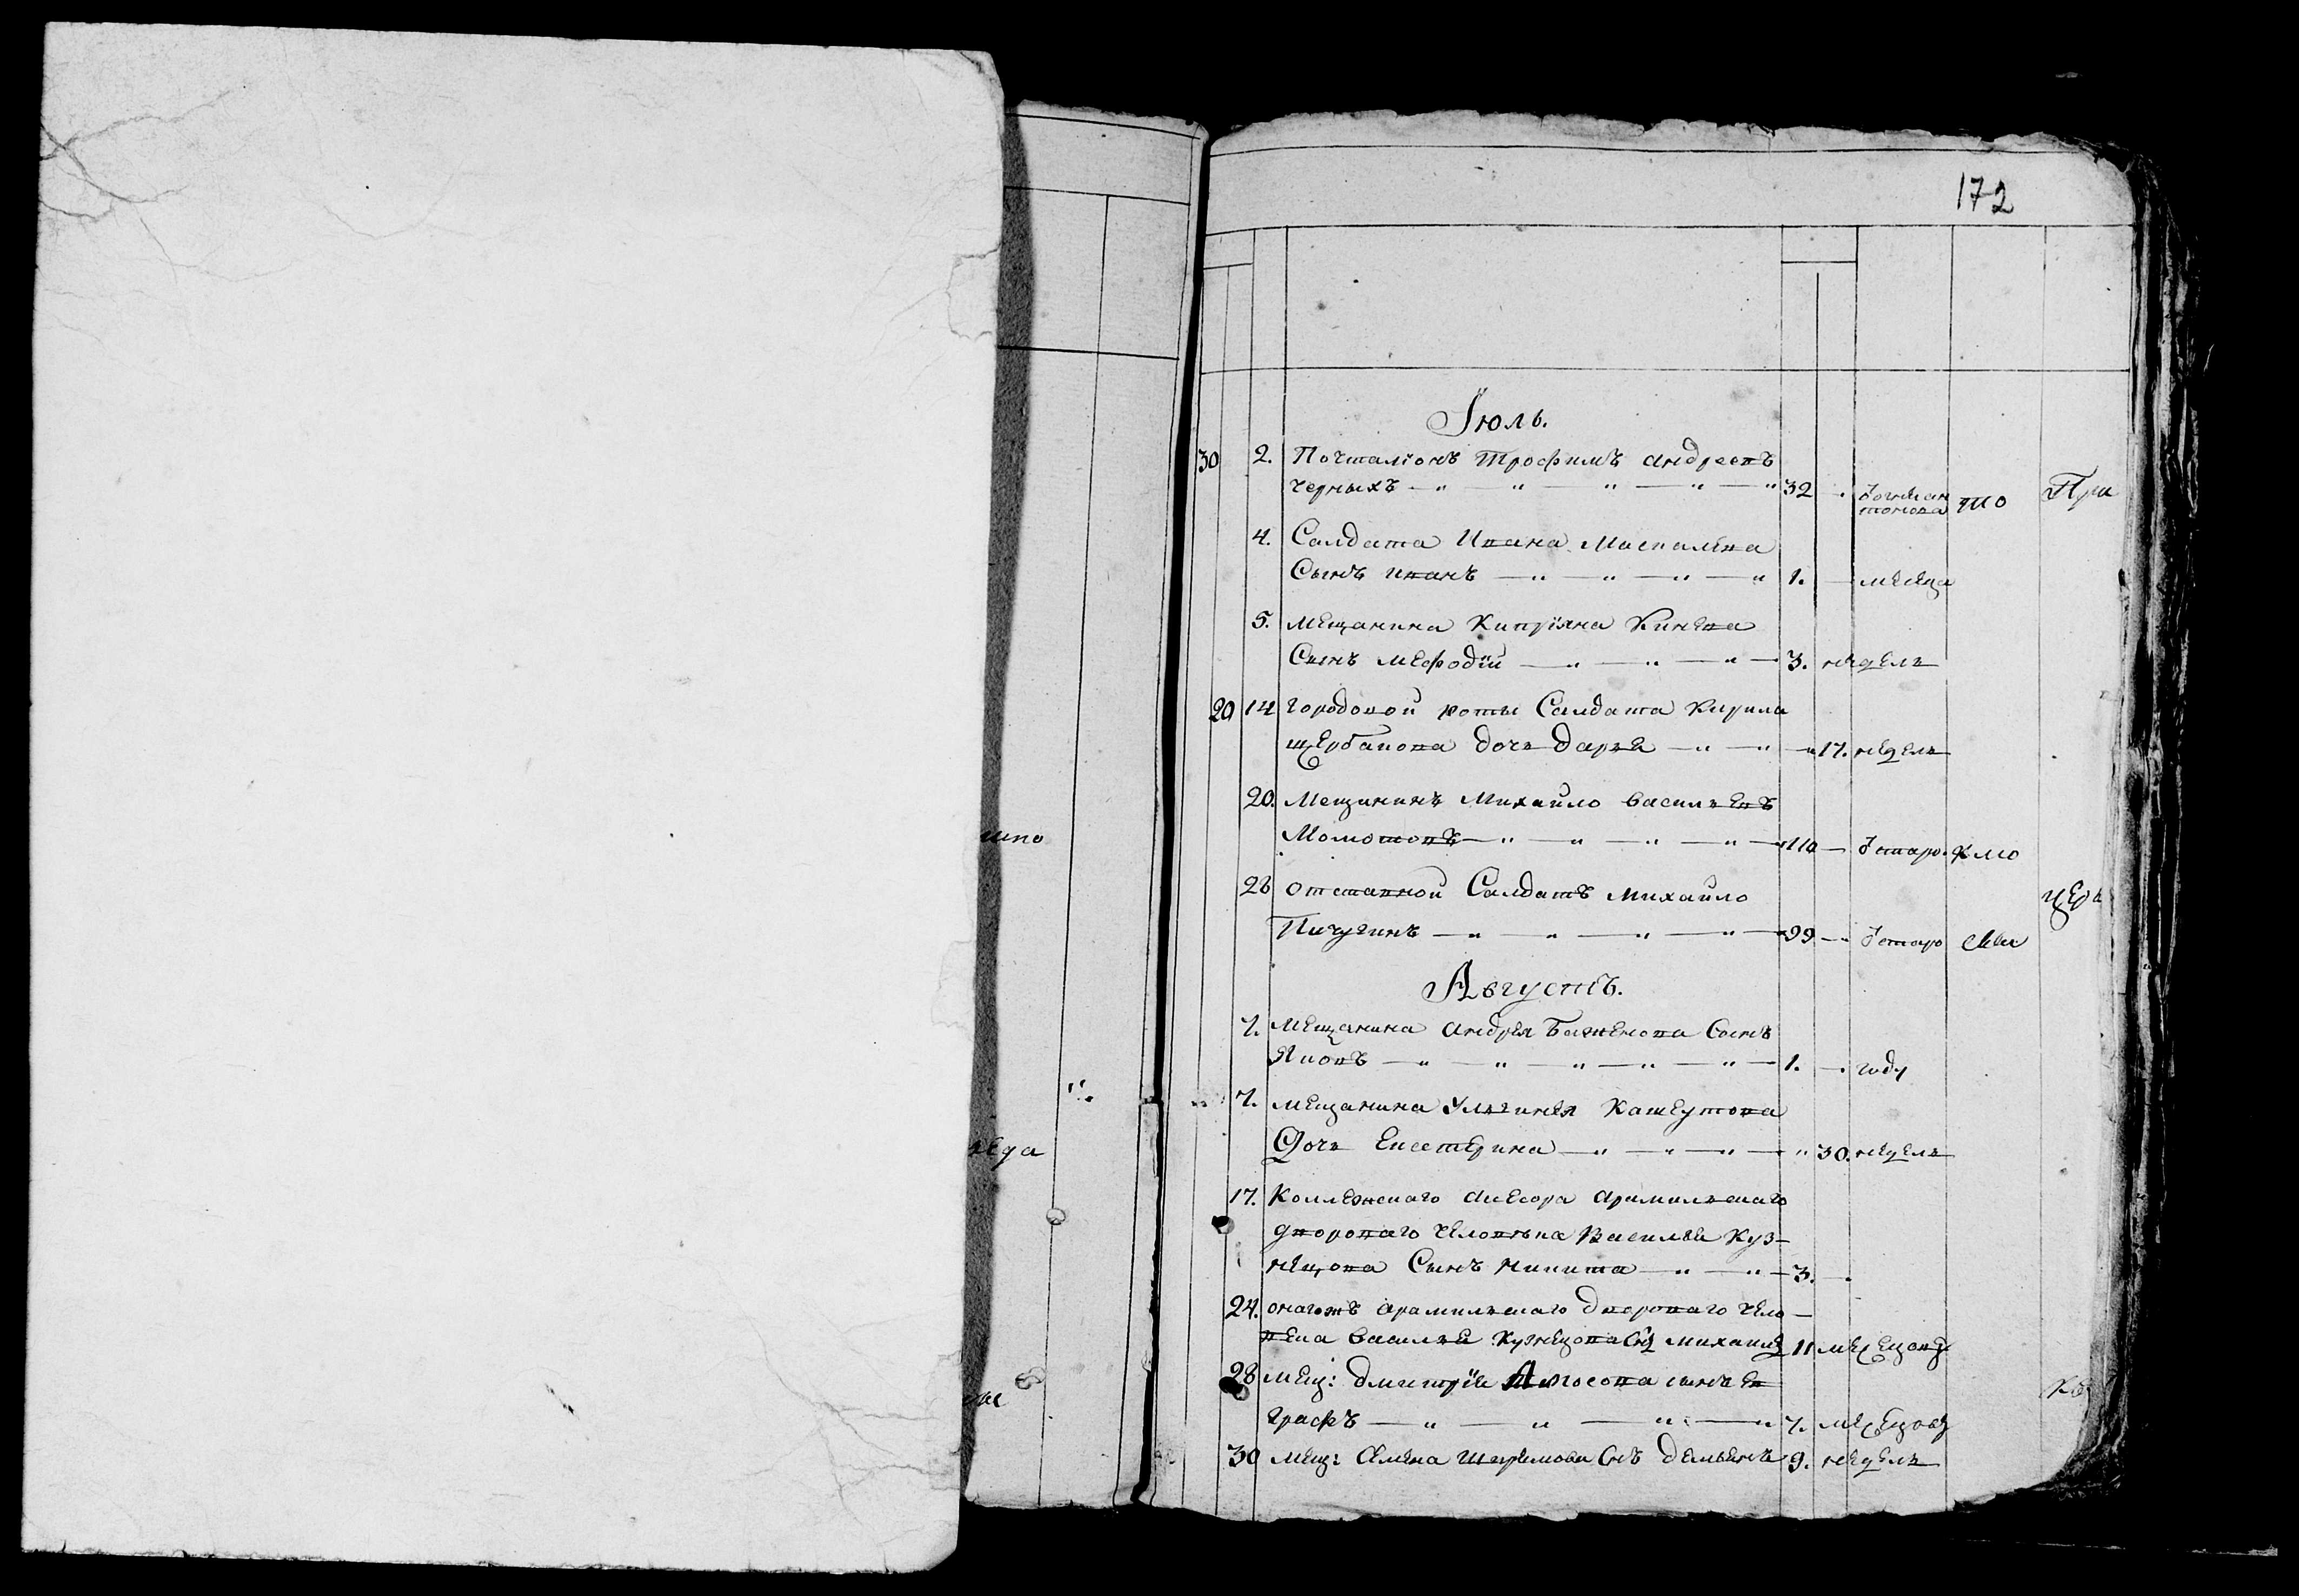 172
Іюль.
30 2. Почталіонъ Трофимъ Андреевъ
Черныхъ 32 При
4. Салдата Ивана Маскалева
Сынъ Иванъ 1. месяца
5. Мещанина Кипріяна Кинева
Сынъ Мефодій 3. недель
20 14 Городовой роты Салдата Кирила
Щербакова дочь Дарья 17. недель
20. Мещанинъ Михайло Васильевъ
Момотовъ 110 старо.
28 отставной Салдатъ Михайло
Пичугинъ 99 старо
Августъ.
1. Мещанина Андрея Баженова Сынъ
Яковъ 1. году
7. Мещанина Кашеутова
Дочь Екатерина 30. недель
17. Коллежскаго Асесора Арамильскаго
дворового человека Василья Куз-
нецова Сынъ Никита 3.
24. онагожъ Арамильскаго Дворового чело-
века Василья Кузнецова Снъ Михаилъ 11 месецовъ
28 мещ: Дмитрія сынъ Ев
графъ 7. месецовъ
30 мещ: Семена Снъ Демьянъ 9. недель
шпо
неда